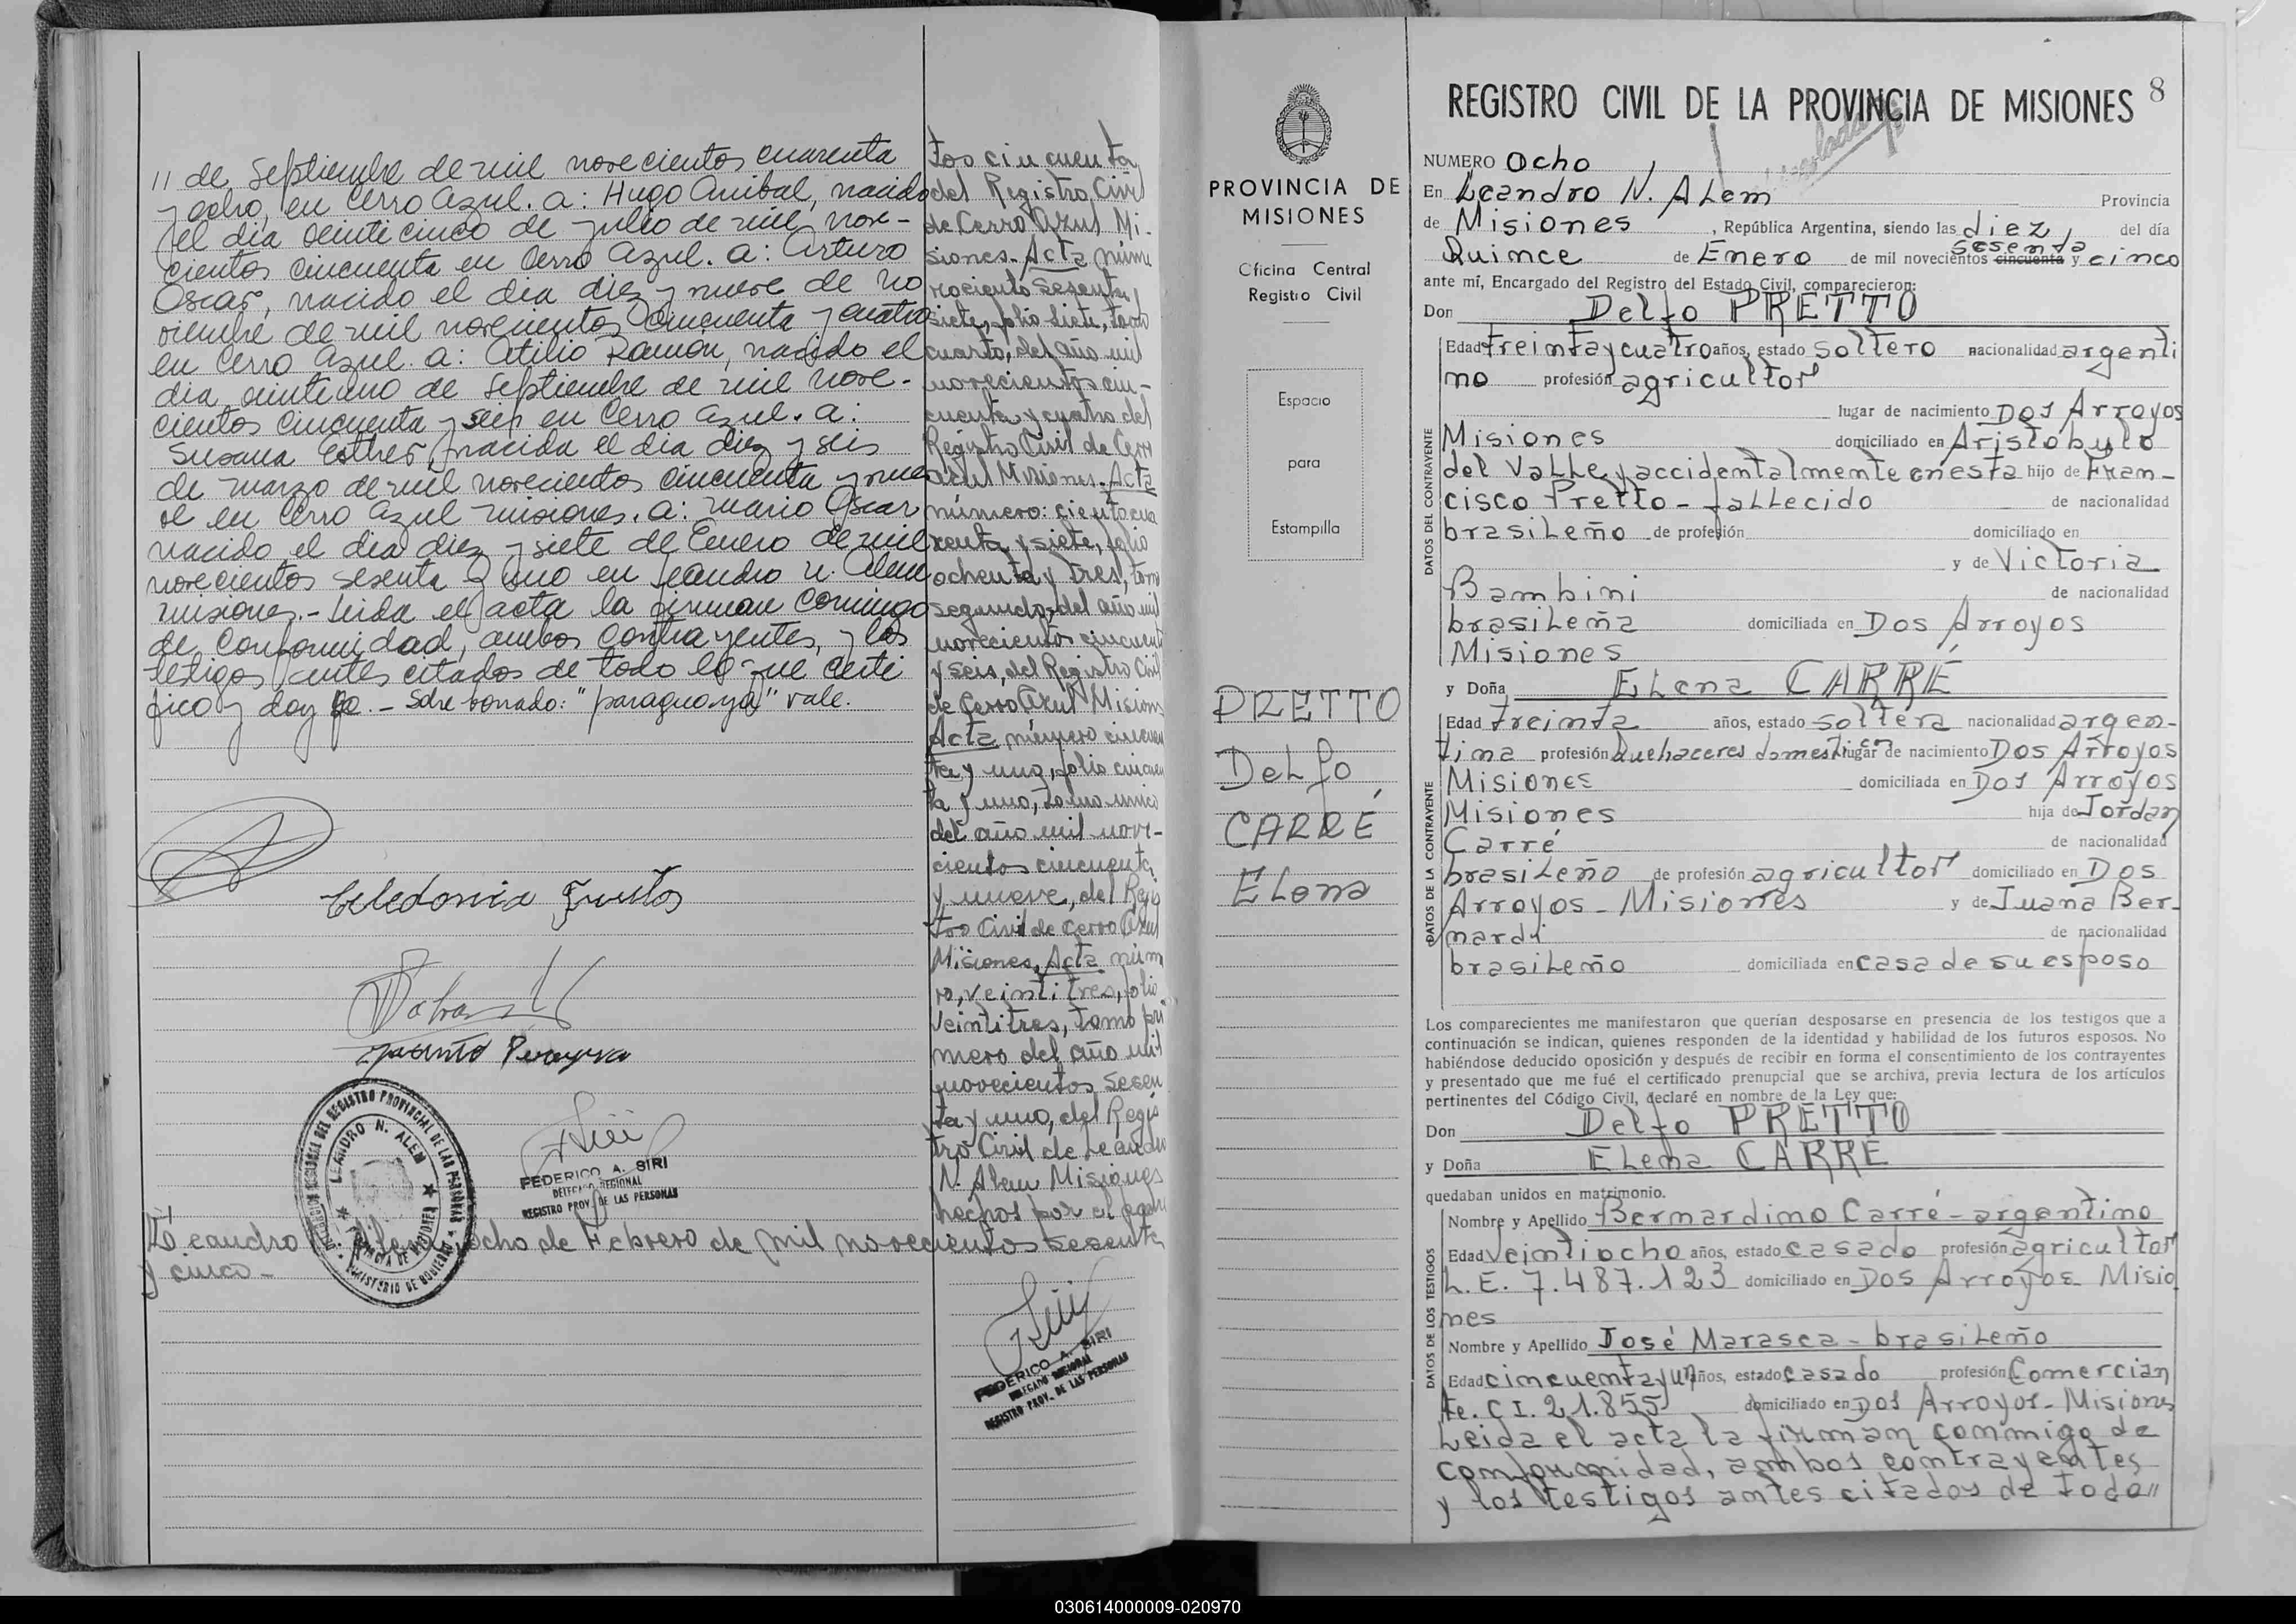 11 de Septiembre de mil novecientos cuarenta
y ocho, en Cerro Azul. a: Hugo Anibal, nacido
el dia veinticinco de Julio de mil nove-
cientos cincuenta en Cerro Azul. a: Arturo
Oscar, nacido el dia diez y nueve de no
viembre de mil novecientos cincuenta y cuatro
en Cerro Azul. a: Atilio Ramón, nacido el
dia veintiuno de Septiembre de mil nove-
cientos cincuenta y seis en Cerro Azul. a:
Susana Esther, nacida el dia diez y seis
de marzo de mil novecientos cincuenta y nue
ve en Cerro Azul misiones. a: Mario Oscar
nacido el dia diez y siete de Enero de mil
novecientos sesenta y uno en Leandro N. Alem
misiones.- Leida el acta la firman conmigo
de conformidad, ambos contrayentes, y los
testigos antes citados de todo lo que certi
fico y doy fe. - Sobre borrado: "paraguaya" vale.
Celedonia
Jacinto Pereyra
DELEGACION REGIONAL DEL REGISTRO PROVINCIAL DE LAS PERSONAS
LEANDRO N. ALEM
PROVINCIA DE MISIONES
MINISTERIO DE GOBIERNO
FEDERICO A. SIRI
DELEGADO REGIONAL
REGISTRO PROV. DE LAS PERSONAS
tos cincuenta
del Registro Civil
de Cerro Azul Mi-
siones. Acta núme
ro ciento sesenta y
siete, folio siete, tomo
cuarto, del año mil
novecientos cin-
cuenta y cuatro del
Registro Civil de Cerro
Azul Misiones. Acta
número: ciento cua
renta y siete, folio
ochenta y tres, tomo
segundo, del año mil
novecientos cincuenta
y seis, del Registro Civil
de Cerro Azul Misiones
Acta número cincuen
ta y uno, folio cincuen
ta y uno, tomo unico
del año mil nove-
cientos cincuenta
y nueve, del Regis
tro Civil de Cerro Azul
Misiones, Acta núme
ro, veintitres, folio
veintitres, tomo pri
mero del año mil
novecientos sesen
ta y uno, del Regis
tro Civil de Leandro
N. Alem Misiones
hechos por el
Leandro N. Alem, ocho de Febrero de mil novecientos sesenta
y cinco -
FEDERICO A. SIRI
DELEGADO REGIONAL
REGISTRO PROV. DE LAS PERSONAS
PROVINCIA DE
MISIONES
Oficina Central
Registro Civil
Espacio
para
Estampilla
PRETTO
Delfo
CARRÉ
Elena
8
REGISTRO CIVIL DE LA PROVINCIA DE MISIONES
NUMERO Ocho
En Leandro N. Alem Provincia
de Misiones, República Argentina, siendo las diez, del día
Quince de Enero de mil novecientos cincuenta sesenta y cinco
ante mí, Encargado del Registro del Estado Civil, comparecieron:
Don Delfo PRETTO
DATOS DEL CONTRAYENTE
Edad treinta y cuatro años, estado soltero nacionalidad argenti
no profesión agricultor
lugar de nacimiento Dos Arroyos
Misiones domiciliado en Aristobulo
del Valle y accidentalmente en esta hijo de Fran-
cisco Pretto - fallecido de nacionalidad
brasileño de profesión domiciliado en
y de Victoria
Bambini de nacionalidad
brasileña domiciliada en Dos Arroyos
Misiones
y Doña Elena CARRÉ
DATOS DE LA CONTRAYENTE
Edad treinta años, estado soltera nacionalidad argen-
tina profesión Quehaceres domesticos lugar de nacimiento Dos Arroyos
Misiones domiciliada en Dos Arroyos
Misiones hija de Jordan
Carré de nacionalidad
brasileño de profesión agricultor domiciliado en Dos
Arroyos - Misiones y de Juana Ber-
nardi de nacionalidad
brasileño domiciliada en casa de su esposo
Los comparecientes me manifestaron que querían desposarse en presencia de los testigos que a
continuación se indican, quienes responden de la identidad y habilidad de los futuros esposos. No
habiéndose deducido oposición y después de recibir en forma el consentimiento de los contrayentes
y presentado que me fué el certificado prenupcial que se archiva, previa lectura de los artículos
pertinentes del Código Civil, declaré en nombre de la Ley que:
Don Delfo PRETTO
y Doña Elena CARRÉ
quedaban unidos en matrimonio.
DATOS DE LOS TESTIGOS
Nombre y Apellido Bernardino Carré - argentino
Edad veintiocho años, estado casado profesión agricultor
L.E. 7.487.123 domiciliado en Dos Arroyos Misio
nes
Nombre y Apellido José Marasca - brasileño
Edad cincuenta y un años, estado casado profesión Comercian
te. C I. 21.855 domiciliado en Dos Arroyos - Misiones
Leida el acta la firman conmigo de
conformidad, ambos contrayentes
y los testigos antes citados de todo //
030614000009-020970